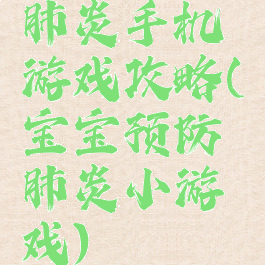 肺炎手机
游戏攻略(
宝宝预防
肺炎小游
戏)